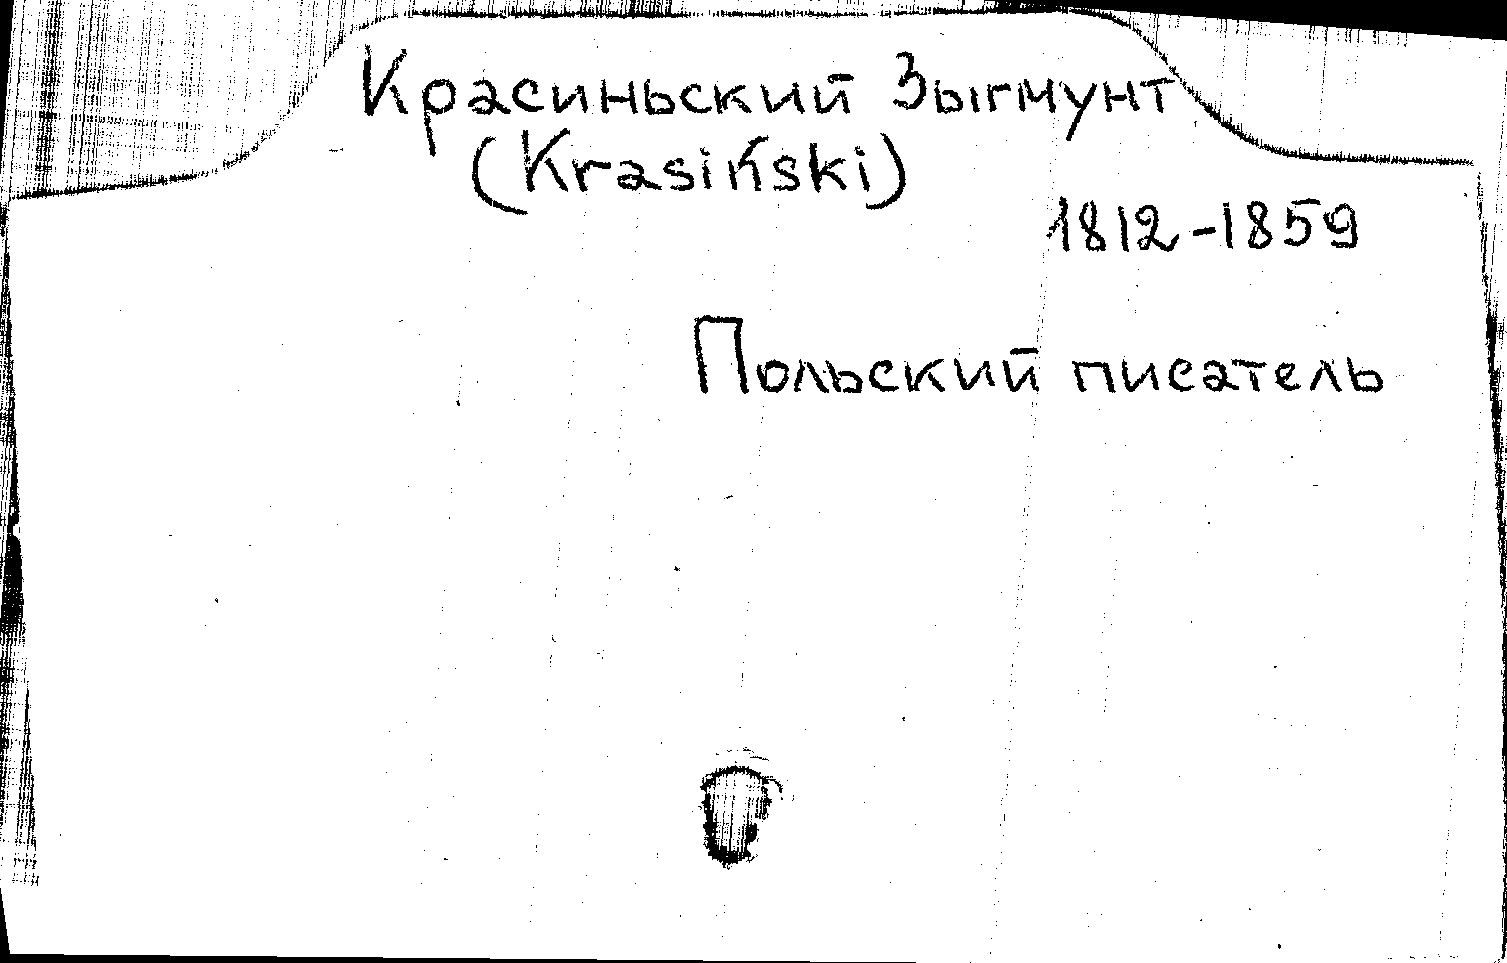 Красиньский Зыгмунт
(Krasiński)
1812-1859
Польский писатель